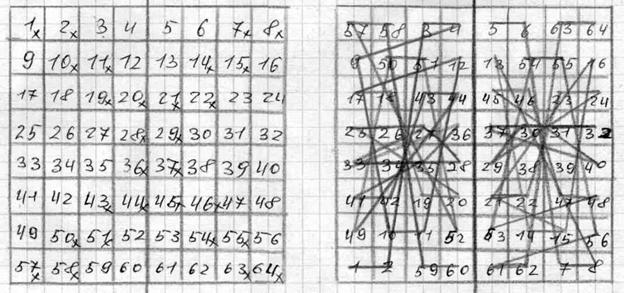 1x 2x 3 4 5 6 7x 8x 57 58 3 4 5 6 63 64
9 10x 11x 12 13 14x 15x 16 9 50 51 12 13 54 55 16
17 18 19x 20x 21x 22x 23 24 17 18 43 44 45 46 23 24
25 26 27 28x 29x 30 31 32 25 26 27 36 37 30 31 32
33 34 35 36x 37x 38 39 40 33 34 35 28 29 38 39 40
41 42 43x 44x 45x 46x 47 48 41 42 19 20 21 22 47 48
49 50x 51x 52 53 54x 55x 56 49 10 11 52 53 14 15 56
57x 58x 59 60 61 62 63x 64x 1 2 59 60 61 62 7 8